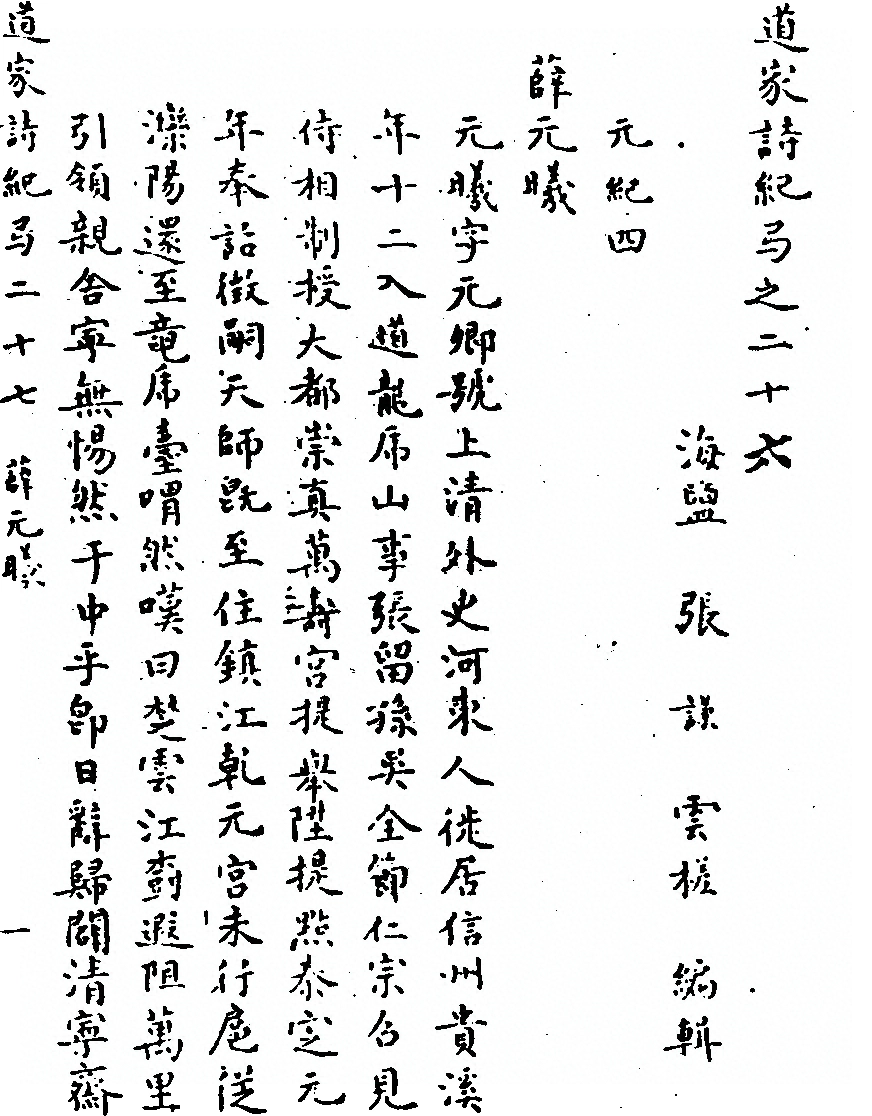 道家詩紀弓之二十六
海鹽 張謹 雲槎 編輯
元紀四
薛元曦
元曦字元卿號上清外史河東人徙居信州貴溪
年十二入道龍虎山事張留孫吳全節仁宗召見
侍相制授大都崇真萬壽宮提舉陞提點泰定元
年奉詔徵嗣天師旣至住鎮江乾元宮未行扈従
灤陽還至竜虎臺喟然嘆曰楚雲江樹遐阻萬里
引領親舍寧無惕然于中乎卽日辭歸閒清寧齋
道家詩紀弓二十七 薛元曦 一